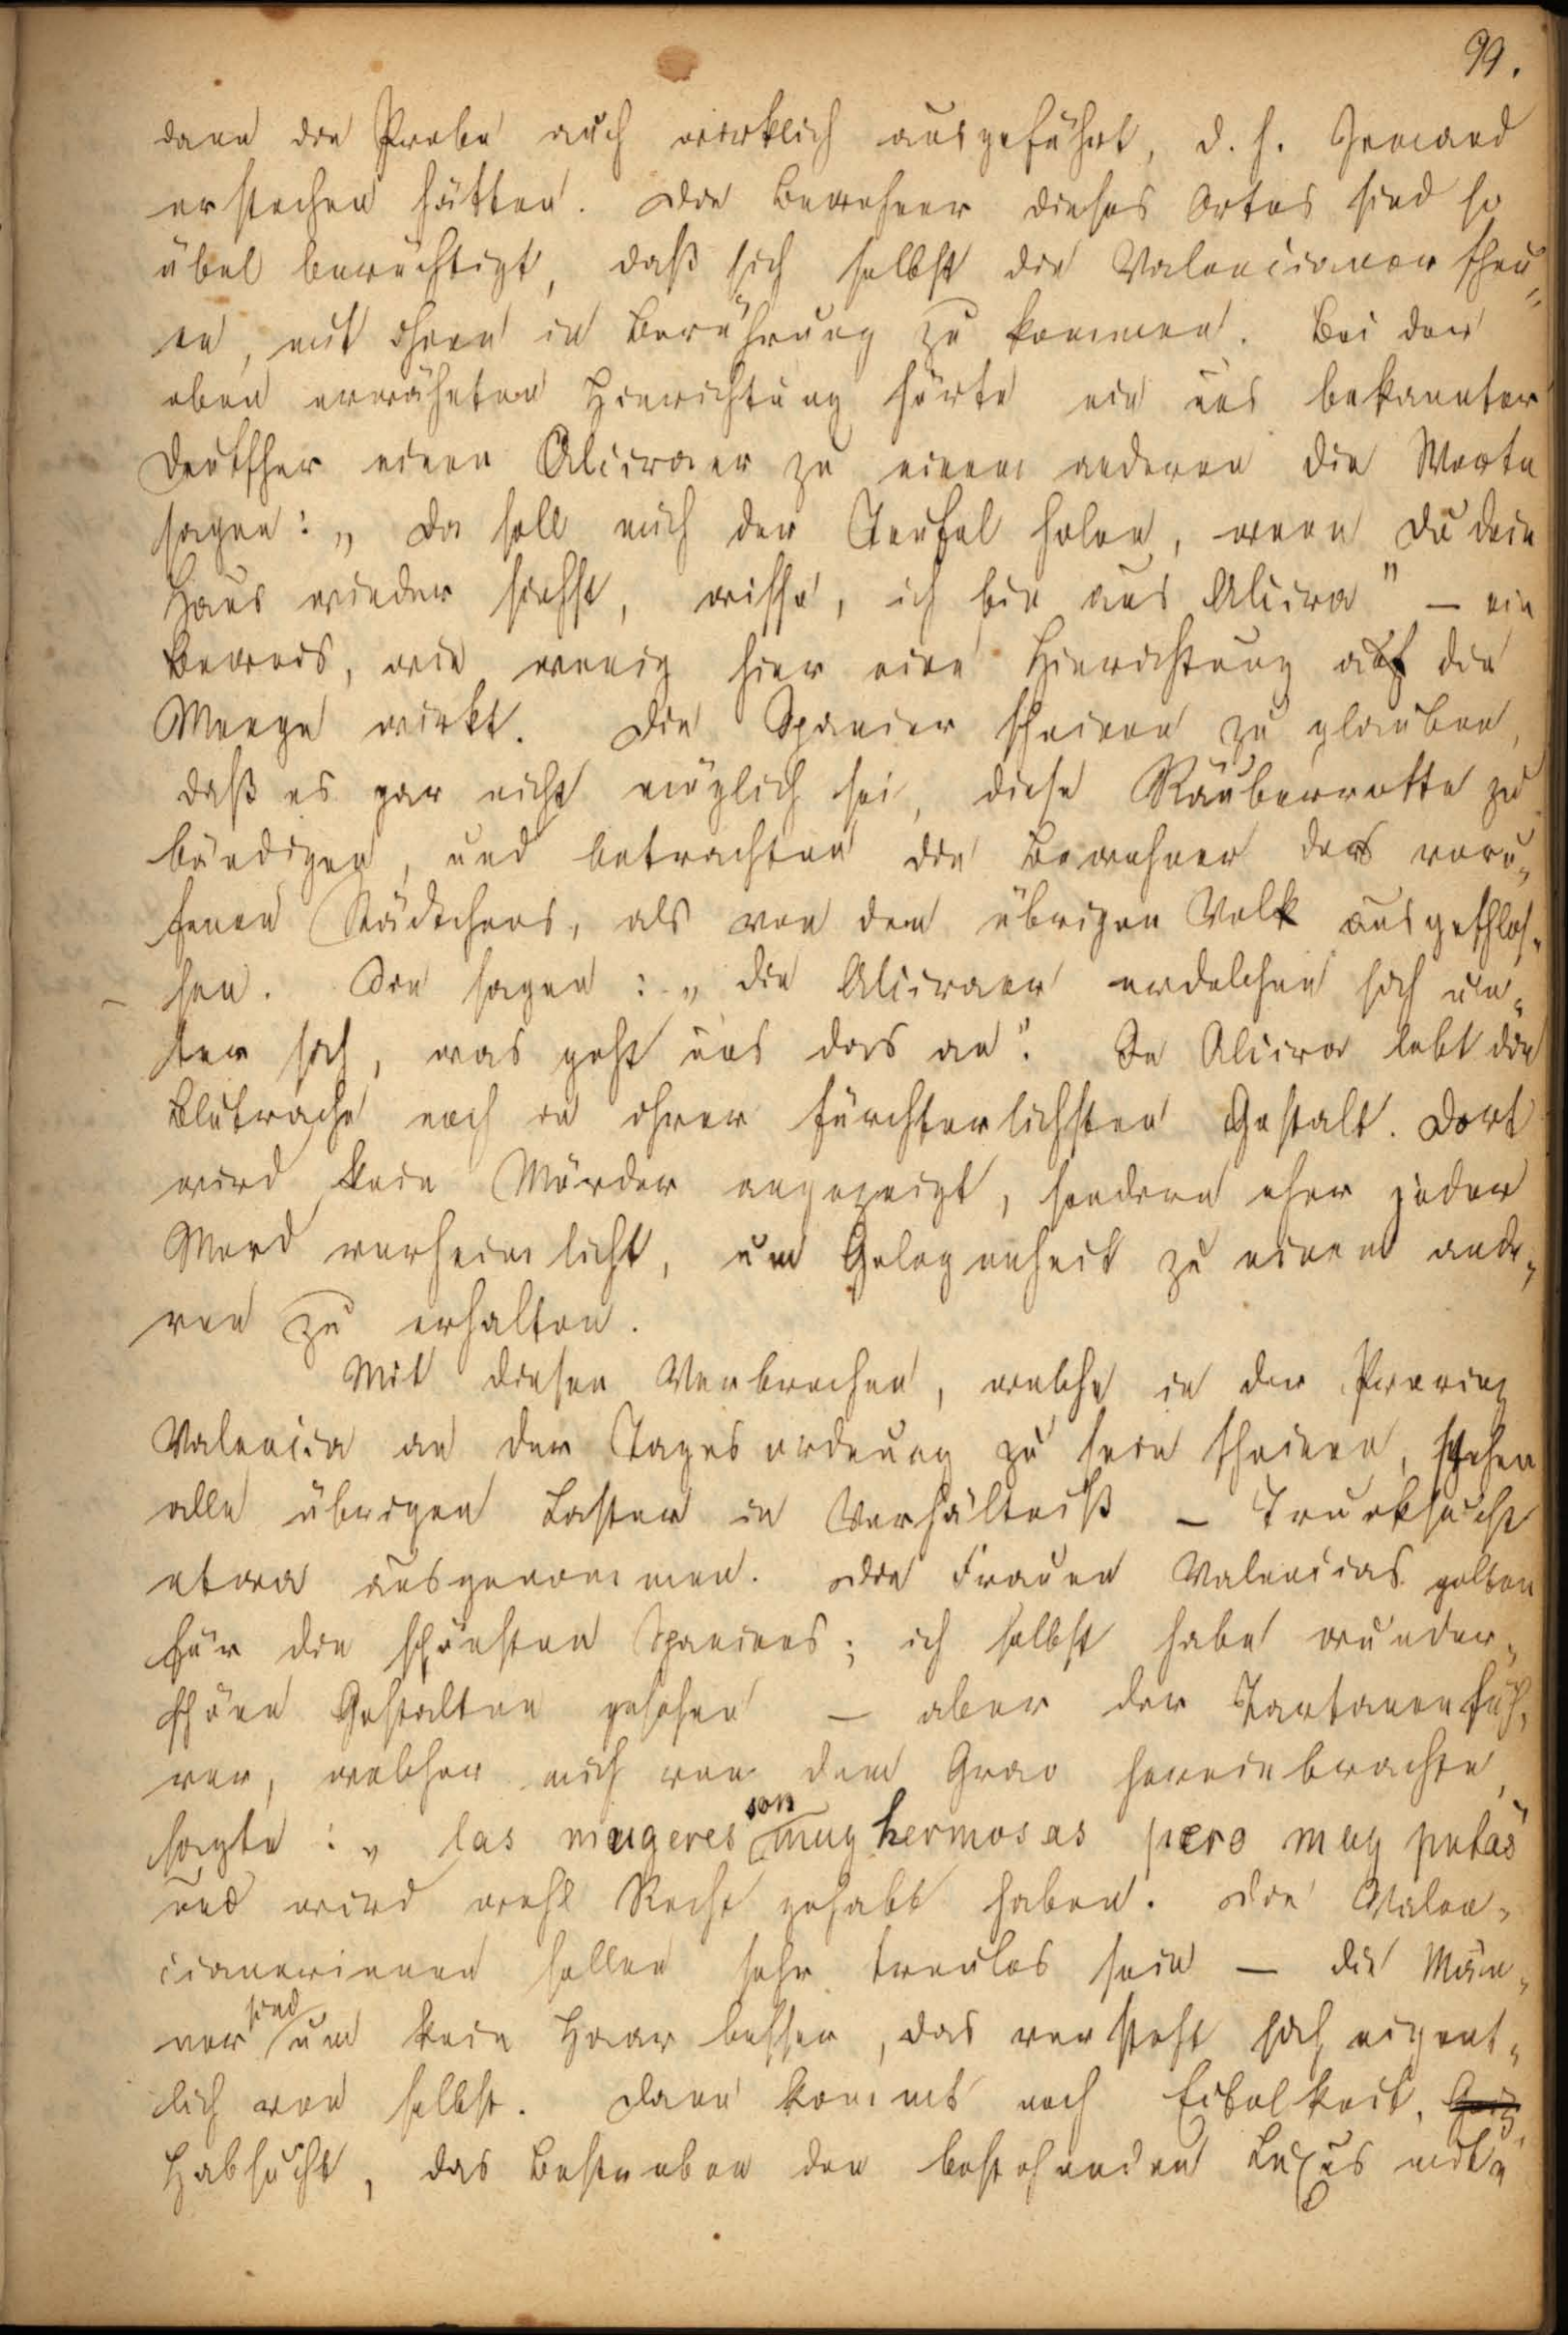 99.
dann die Probe auch wirklich ausgeführt, d. h. Jemand
erstochen hätten. Die Bewohner dieses Ortes sind so
übel berüchtigt, daß sich selbst die Valencianer scheu„
en, mit ihnen in Berührung zu kommen. Bei der
oben erwähnten Hinrichtung hörte ein uns bekannter
Deutscher einen Alciraer zu einem anderen die Worte
sagen: „Da soll mich der Teufel holen, wenn Du dein
Haus wieder siehst, wisse, ich bin aus Alcira" — ein
Beweis, wie wenig hier eine Hinrichtung auf die
Menge wirkt. Die Spanier scheinen zu glauben,
daß es gar nicht möglich sei, diese Räuberrotte zu
bändigen, und betrachten die Bewohner des veru„
fenen Städtchens, als von dem übrigen Volk ausgeschlos„
sen. Sie sagen: „die Alciraer erdolchen sich un„
ter sich, was geht uns das an". In Alcira lebt die
Blutrache noch in ihrer fürchterlichsten Gestalt. Dort
wird kein Mörder angezeigt, sondern eher jeder
Mord verheimlicht, um Gelegenheit zu einem ande„
ren zu erhalten.
Mit diesen Verbrechen, welche in der Provinz
Valencia an der Tagesordnung zu sein scheinen, stehen
alle übrigen Laster in Verhältniß — Trunksucht
etwa ausgenommen. Die Frauen Valencias gelten
für die schönsten Spaniens; ich selbst habe wunder„
schöne Gestalten gesehen — aber der Tartanenfüh„
rer, welcher mich von dem Grao hereinbrachte,
sagte: „las mugeres son muy hermosas pero muy putas"
und wird wohl Recht gehabt haben. Die Valen„
cianerinnen sollen sehr treulos sein — die Män„
ner sind um kein Haar besser, das versteht sich eigent„
lich von selbst. Dann kommt noch Eitelkeit, Geiz,
Habsucht, das Bestreben den bestehenden Luxus mit„